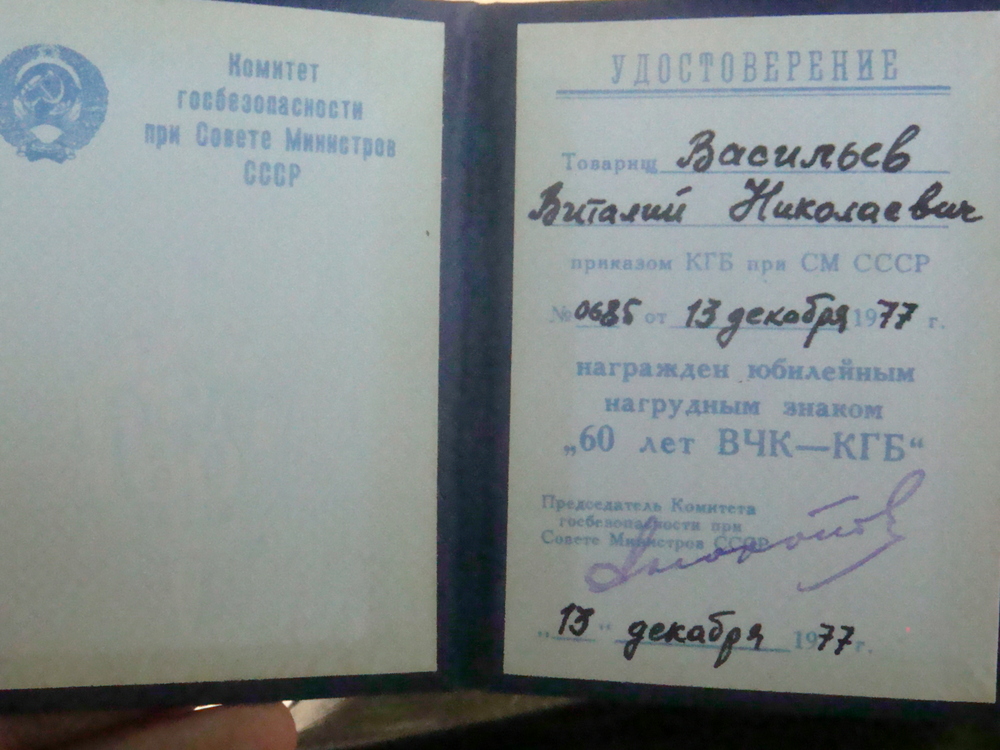 Комитет
госбезопасности
при Совете Министров
СССР
УДОСТОВЕРЕНИЕ
Товарищ Васильев
Виталий Николаевич
приказом КГБ при СМ СССР
№ 0685 от 13 декабря 1977 г.
награжден юбилейным
нагрудным знаком
„60 лет ВЧК—КГБ“
Председатель Комитета
госбезопасности при
Совете Министров СССР
„13“ декабря 1977 г.